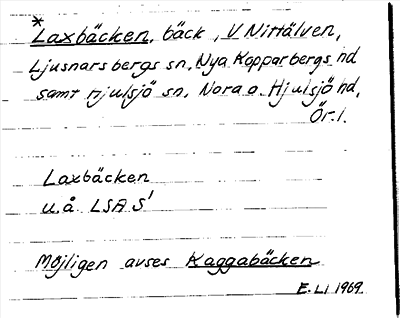 *Laxbäcken, bäck, V Nittälven,
Ljusnarsbergs sn, Nya Kopparbergs hd
samt Hjulsjö sn, Nora o. Hjulsjö hd,
Ör. l.
Laxbäcken
u.å. LSA S'
Möjligen avses Kaggabäcken
E. LI 1969